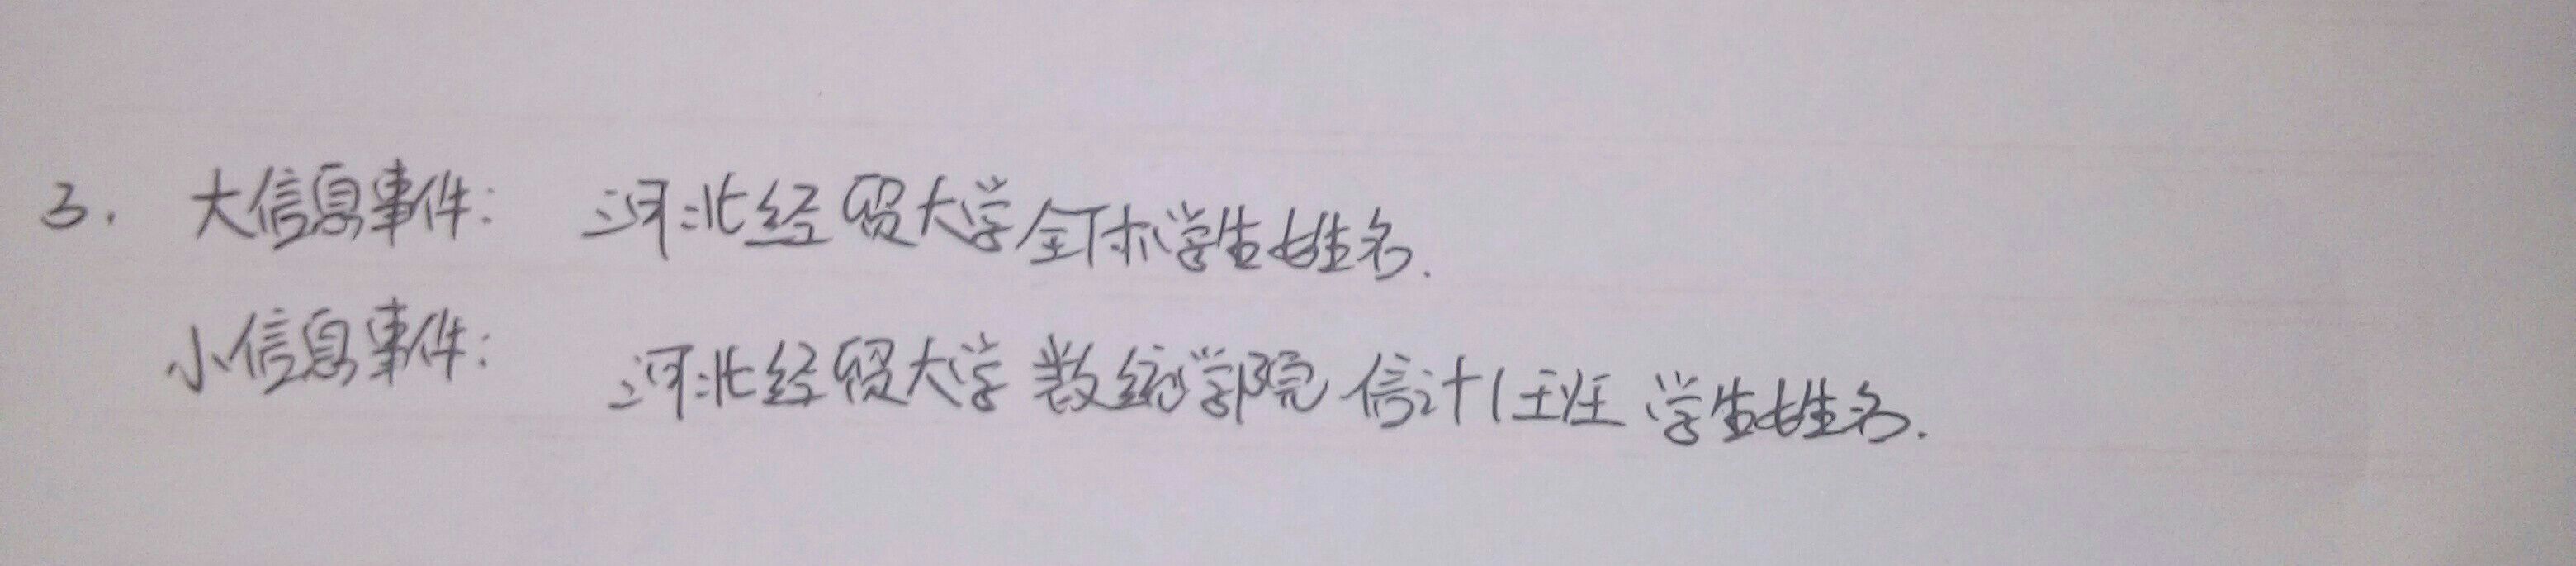 3. 大信息事件: 河北经贸大学全体学生姓名.
小信息事件: 河北经贸大学 数统学院 信计1班 学生姓名.